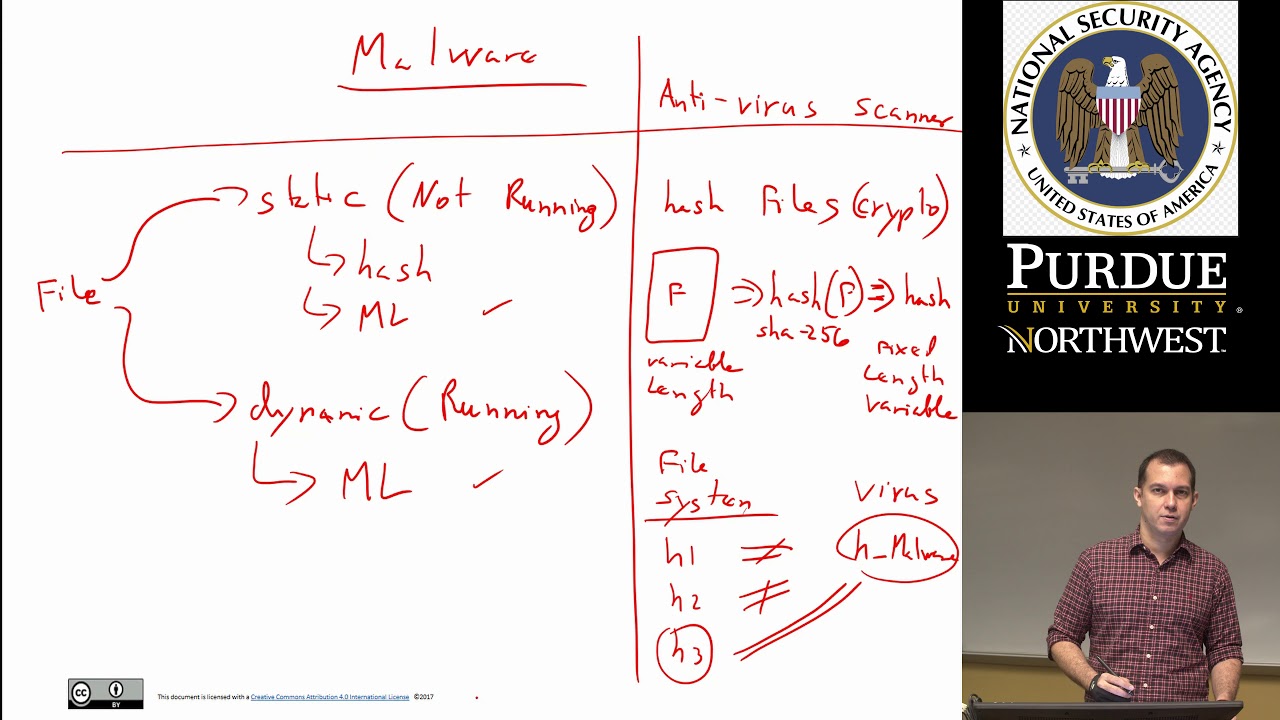 Malware
Anti-virus scanner
static (Not Running)
hash
ML
File
dynamic (Running)
ML
hash Files (crypto)
F ⇒ hash(F) ⇒ hash
sha-256
variable
Length
Fixed
Length
variable
File
system
Virus
h1 ≠ h_Malware
h2 ≠
h3
NATIONAL SECURITY AGENCY
UNITED STATES OF AMERICA
PURDUE
UNIVERSITY
NORTHWEST
cc BY
This document is licensed with a Creative Commons Attribution 4.0 International License ©2017